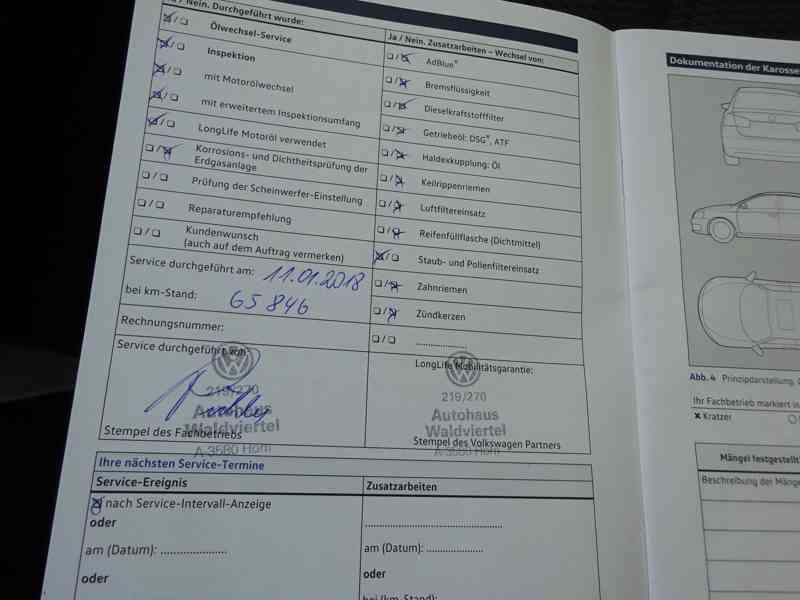 / Nein. Durchgeführt wurde:
Ölwechsel-Service
Inspektion
mit Motorölwechsel
mit erweitertem Inspektionsumfang
LongLife Motoröl verwendet
Korrosions- und Dichtheitsprüfung der
Erdgasanlage
Prüfung der Scheinwerfer-Einstellung
Reparaturempfehlung
Kundenwunsch
(auch auf dem Auftrag vermerken)
Service durchgeführt am: 11.01.2018
bei km-Stand: 65 846
Rechnungsnummer:
Service durchgeführt von:
219/270
Autohaus
Waldviertel
Stempel des Fachbetriebs
A 3580 Horn
Ja / Nein. Zusatzarbeiten – Wechsel von:
AdBlue®
Bremsflüssigkeit
Dieselkraftstofffilter
Getriebeöl: DSG®, ATF
Haldexkupplung: Öl
Keilrippenriemen
Luftfiltereinsatz
Reifenfüllflasche (Dichtmittel)
Staub- und Pollenfiltereinsatz
Zahnriemen
Zündkerzen
....................
LongLife Mobilitätsgarantie:
219/270
Autohaus
Waldviertel
Stempel des Volkswagen Partners
A 3580 Horn
Ihre nächsten Service-Termine
Service-Ereignis
nach Service-Intervall-Anzeige
oder
am (Datum): ....................
oder
Zusatzarbeiten
am (Datum): ....................
oder
bei (km-Stand):
Dokumentation der Karosse
Abb. 4 Prinzipdarstellung,
Ihr Fachbetrieb markiert in
× Kratzer
Mängel festgestellt
Beschreibung der Mäng